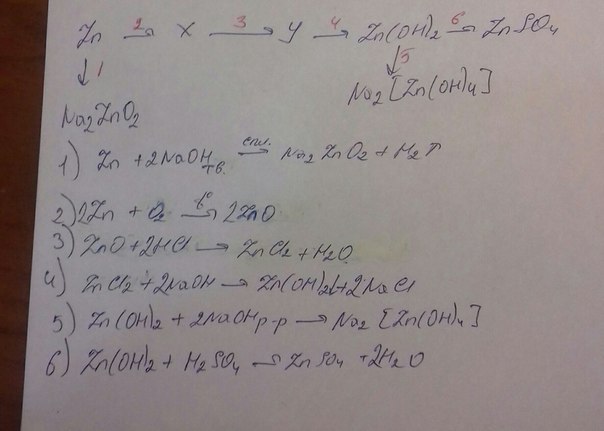 Zn 2→ X 3→ Y 4→ Zn(OH)2 6→ ZnSO4
↓ 1 ↓ 5
Na2[Zn(OH)4]
Na2ZnO2
1) Zn + 2NaOH тв. спл.→ Na2ZnO2 + H2↑
2) 2Zn + O2 t°→ 2ZnO
3) ZnO + 2HCl → ZnCl2 + H2O
4) ZnCl2 + 2NaOH → Zn(OH)2↓ + 2NaCl
5) Zn(OH)2 + 2NaOH р-р → Na2[Zn(OH)4]
6) Zn(OH)2 + H2SO4 → ZnSO4 + 2H2O